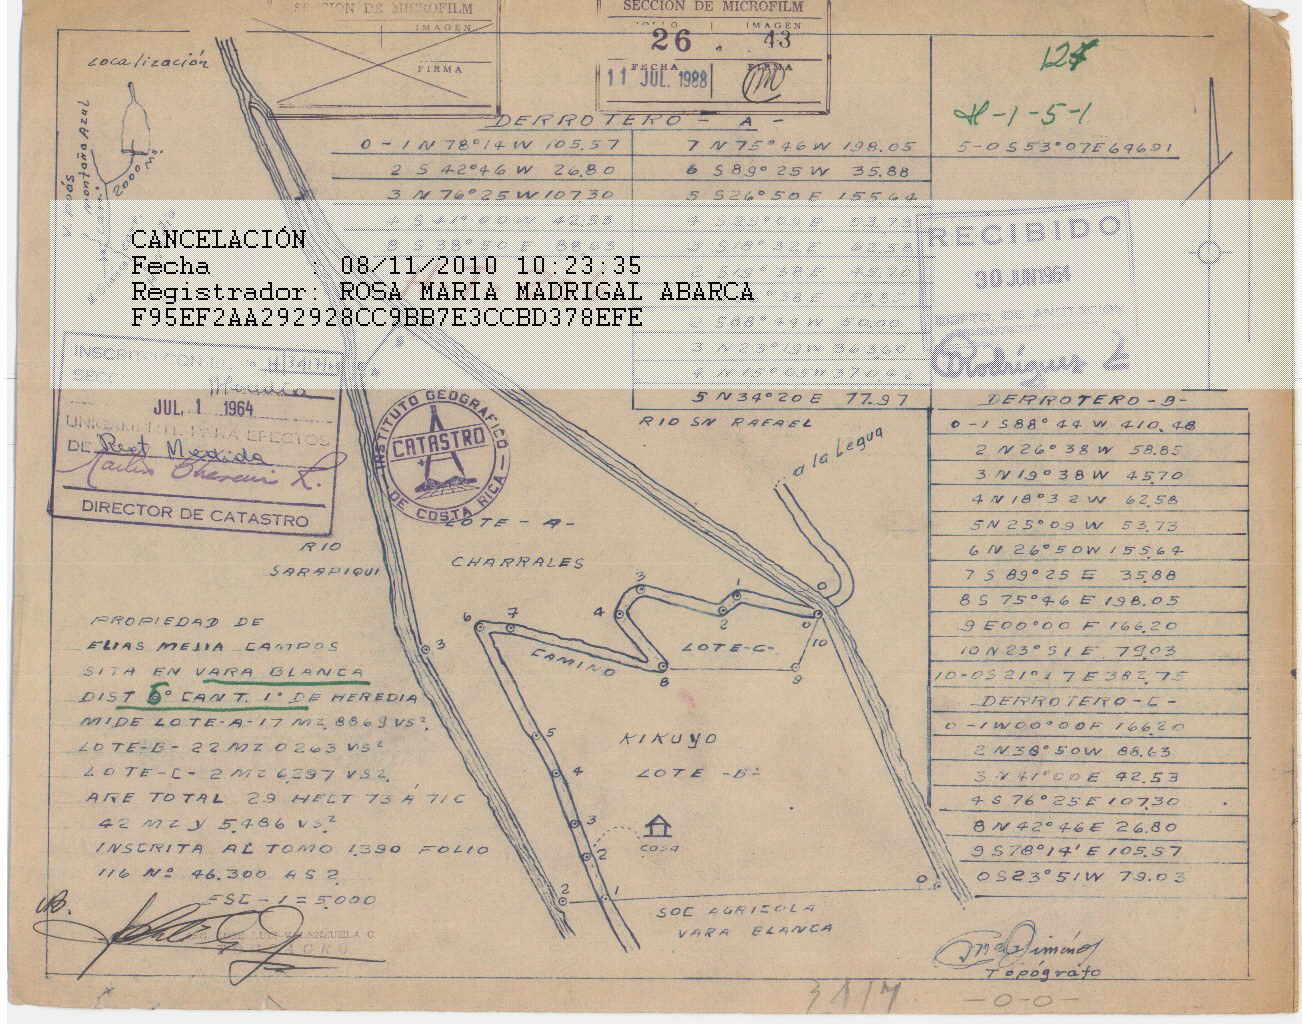 SECCION DE MICROFILM
IMAGEN
FIRMA
SECCION DE MICROFILM
IMAGEN
26 43
FECHA FIRMA
11 JUL. 1988
124
H-1-5-1
Localización
montaña Azul
2000 m.
DERROTERO - A -
0-1 N 78°14 W 105.57
2 S 42°46 W 26.80
3 N 76°25 W 107.30
4 S 41°00 W 42.53
8 S 38°50 E 88.63
7 N 75°46 W 198.05
6 S 89°25 W 35.88
5 S 26°50 E 155.64
4 S 25°09 E 53.73
3 S 18°32 E 62.58
2 S 19°38 E 45.70
2 S 88°44 W 50.00
3 N 23°19 W 363.60
4 N 15°05 W 370.40
5 N 34°20 E 77.97
5-0 S 53°07 E 646.91
RECIBIDO
30 JUN 1964
CANCELACIÓN
Fecha : 08/11/2010 10:23:35
Registrador: ROSA MARIA MADRIGAL ABARCA
F95EF2AA292928CC9BB7E3CCBD378EFE
INSCRITO CON EL No.
Heredia
JUL. 1 1964
UNICAMENTE PARA EFECTOS
DE Rect Medida
DIRECTOR DE CATASTRO
INSTITUTO GEOGRAFICO
CATASTRO
DE COSTA RICA
RIO SN RAFAEL
a la Legua
LOTE - A -
CHARRALES
RIO
SARAPIQUI
CAMINO
LOTE-C-
KIKUYO
LOTE -B-
casa
SOC AGRICOLA
VARA BLANCA
PROPIEDAD DE
ELIAS MEJIA CAMPOS
SITA EN VARA BLANCA
DIST 6° CANT. 1° DE HEREDIA
MIDE LOTE-A-17 MZ 8869 VS²
LOTE-B- 22 MZ 0263 VS²
LOTE-C- 2 MZ 6297 VS²
ARE TOTAL 29 HECT 73 A 71 C
42 MZ Y 5.486 VS²
INSCRITA AL TOMO 1.390 FOLIO
116 Nº 46.300 AS 2
ESC - 1 = 5.000
ING. JOSE LUIS VALENZUELA C
DERROTERO -B-
0-1 S 88°44 W 410.48
2 N 26°38 W 58.85
3 N 19°38 W 45.70
4 N 18°32 W 62.58
5 N 25°09 W 53.73
6 N 26°50 W 155.64
7 S 89°25 E 35.88
8 S 75°46 E 198.05
9 E 00°00 F 166.20
10 N 23°51 E 79.03
10-0 S 21°17 E 382.75
DERROTERO -C-
0-1 W 00°00 F 166.20
2 N 38°50 W 88.63
3 N 41°00 E 42.53
4 S 76°25 E 107.30
8 N 42°46 E 26.80
9 S 78°14' E 105.57
0 S 23°51 W 79.03
Topógrafo
-0-0-
3417